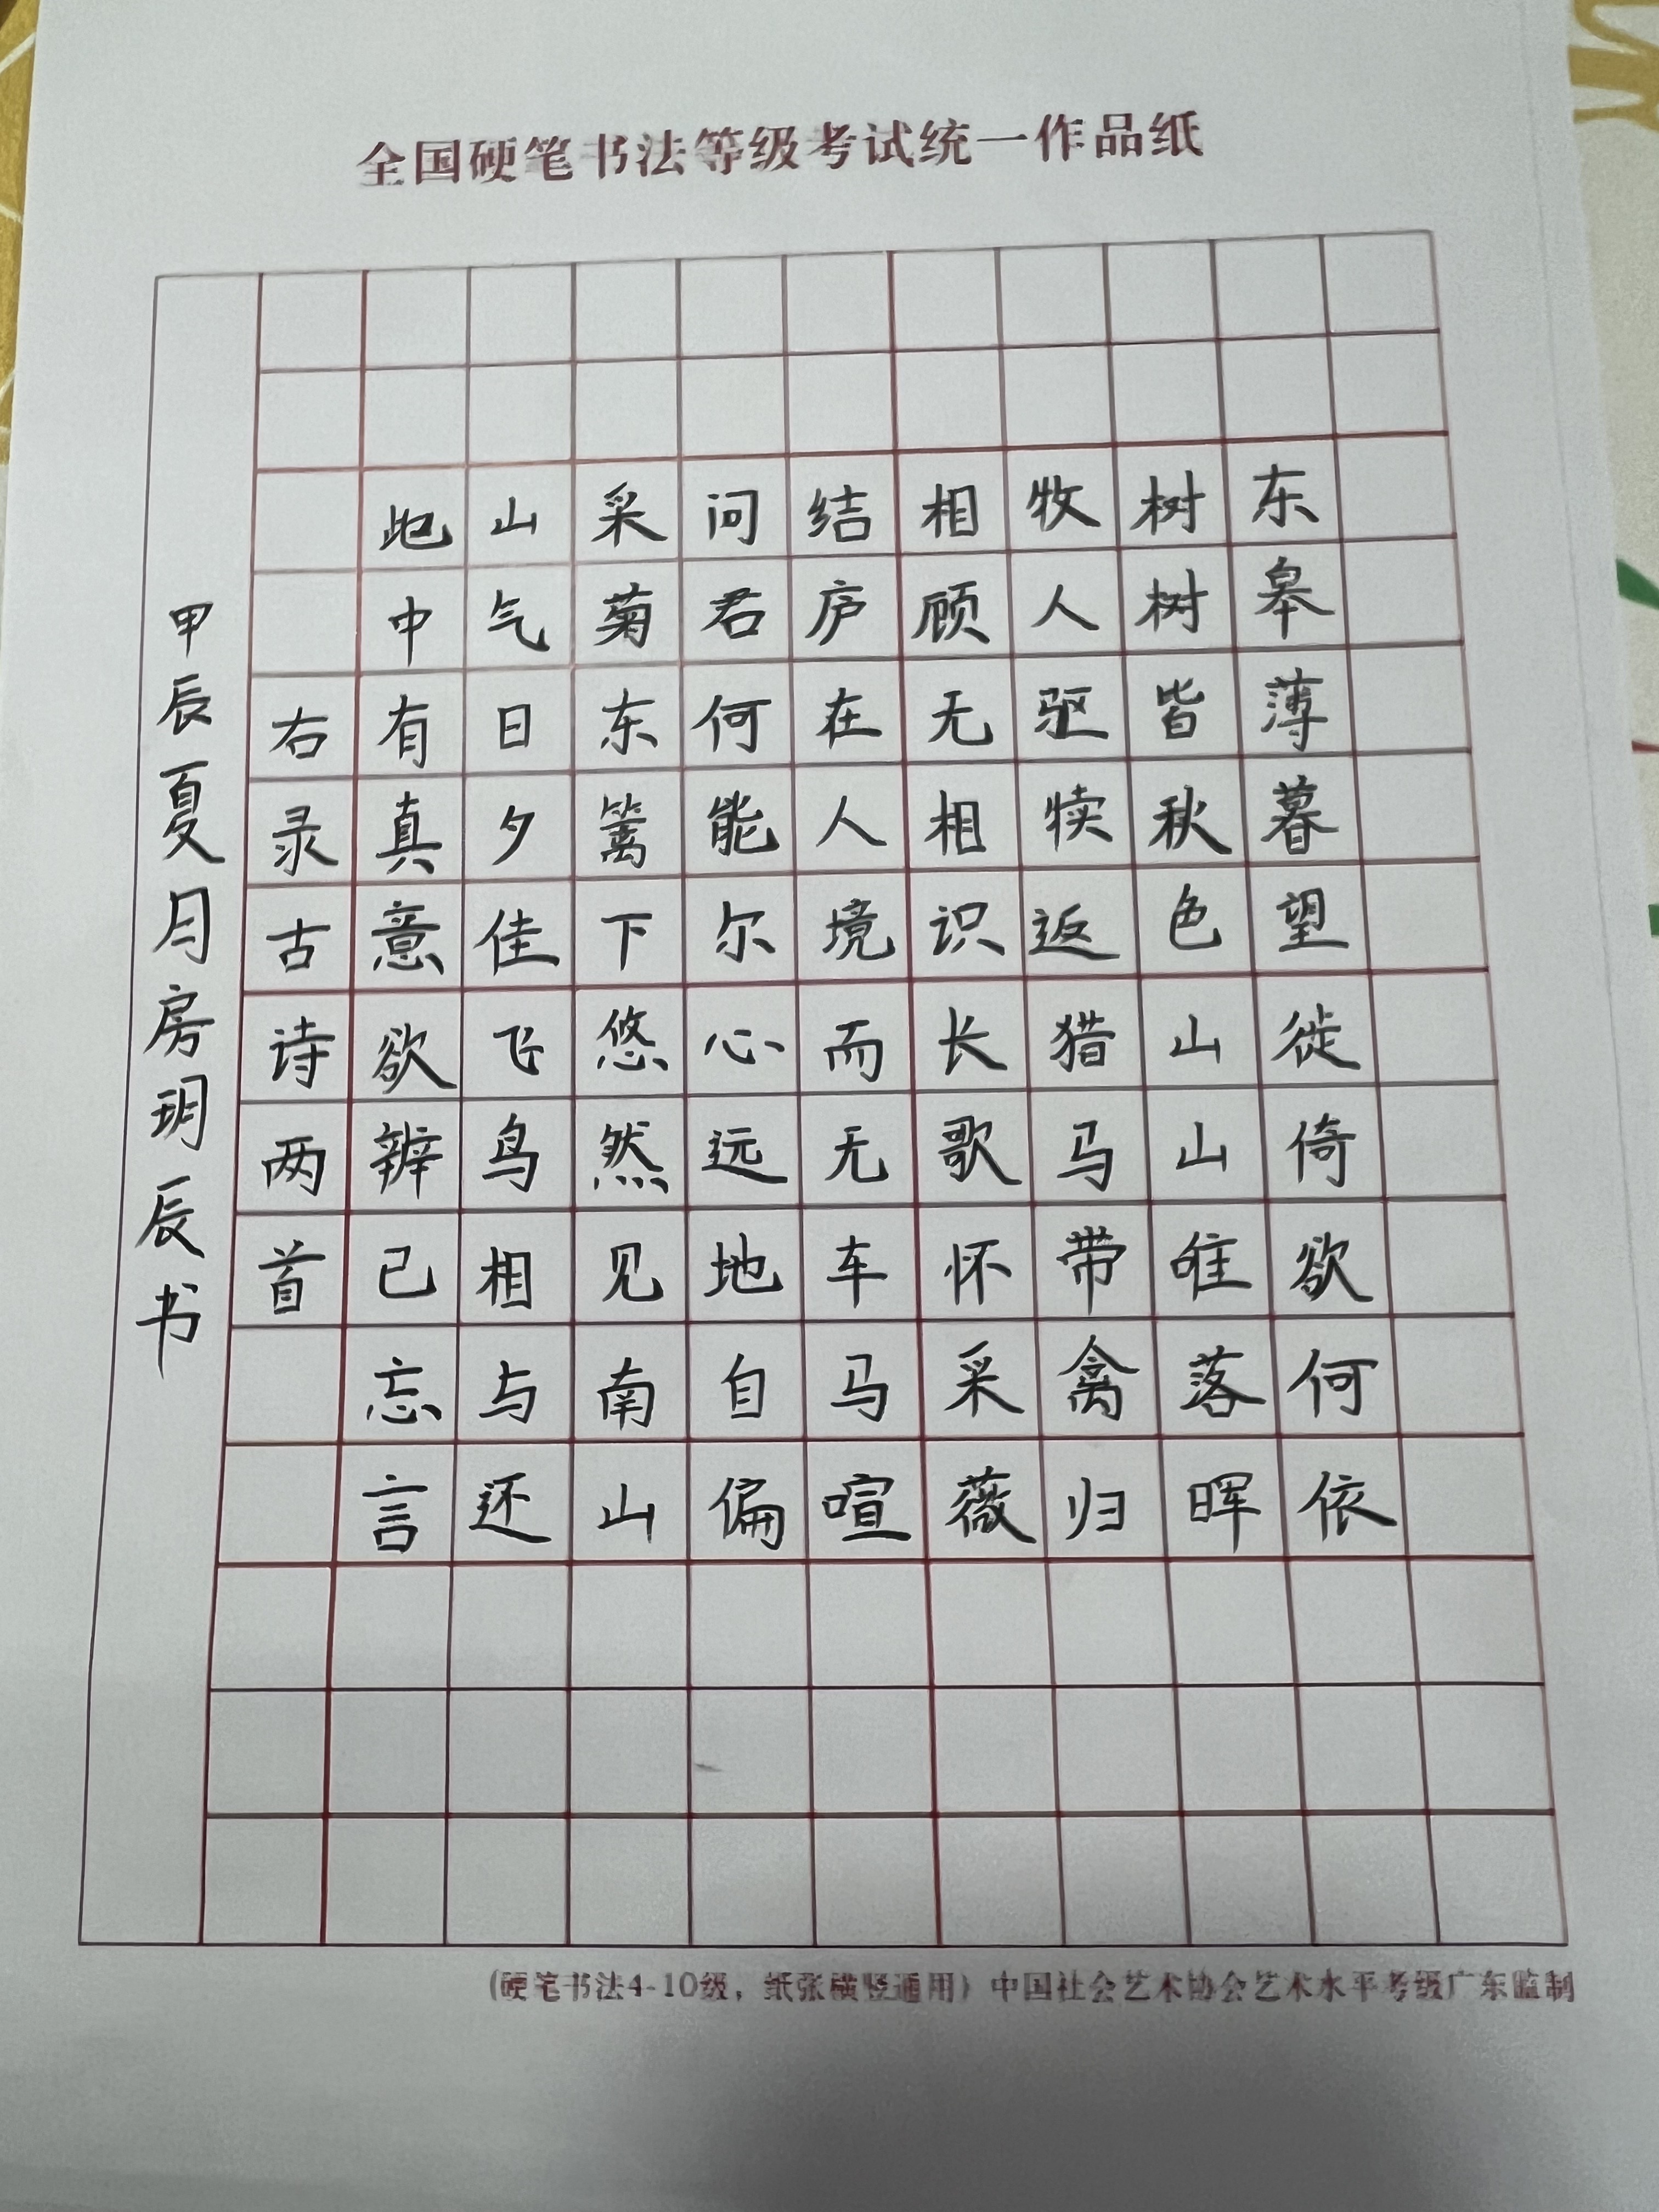 全国硬笔书法等级考试统一作品纸
东皋薄暮望徙倚欲何依
树树皆秋色山山唯落晖
牧人驱犊返猎马带禽归
相顾无相识长歌怀采薇
结庐在人境而无车马喧
问君何能尔心远地自偏
采菊东篱下悠然见南山
山气日夕佳飞鸟相与还
此中有真意欲辨已忘言
右录古诗两首
甲辰夏月房玥辰书
(硬笔书法4-10级，纸张横竖通用) 中国社会艺术协会艺术水平考级广东监制